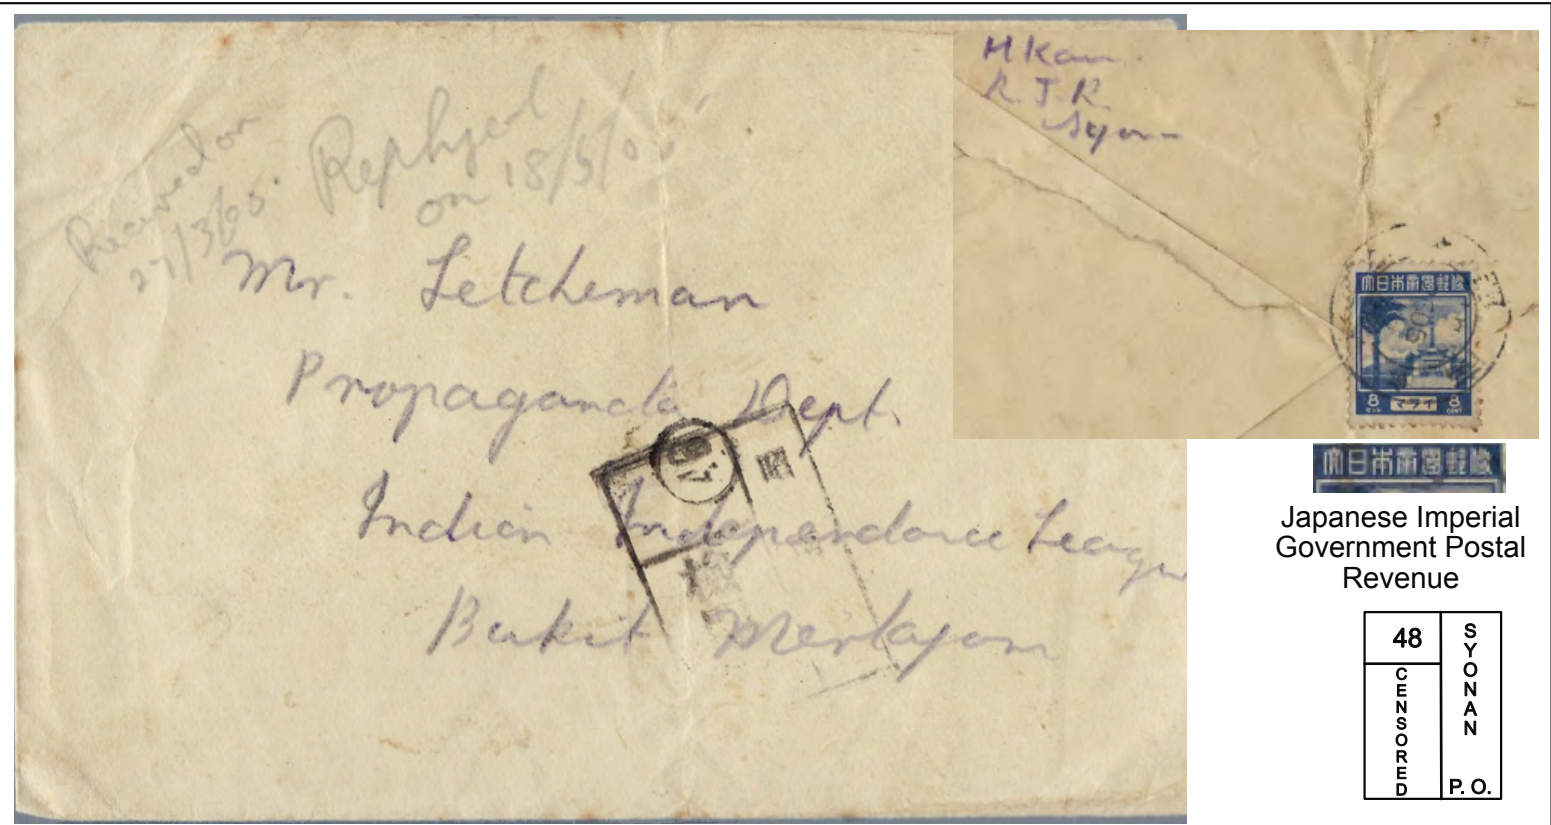 Received on
27/3/05.
Replyed
on 15/5/0
Mr. Letcheman
Propaganda Dept.
Indian Independance League
Bukit Mertajam
昭
検
H Kam
R. J. R.
Syon
大日本帝国郵便
8 マライ 8
セント CENT
05
大日本帝国郵便
Japanese Imperial
Government Postal
Revenue
48
CENSORED
SYONAN
P. O.